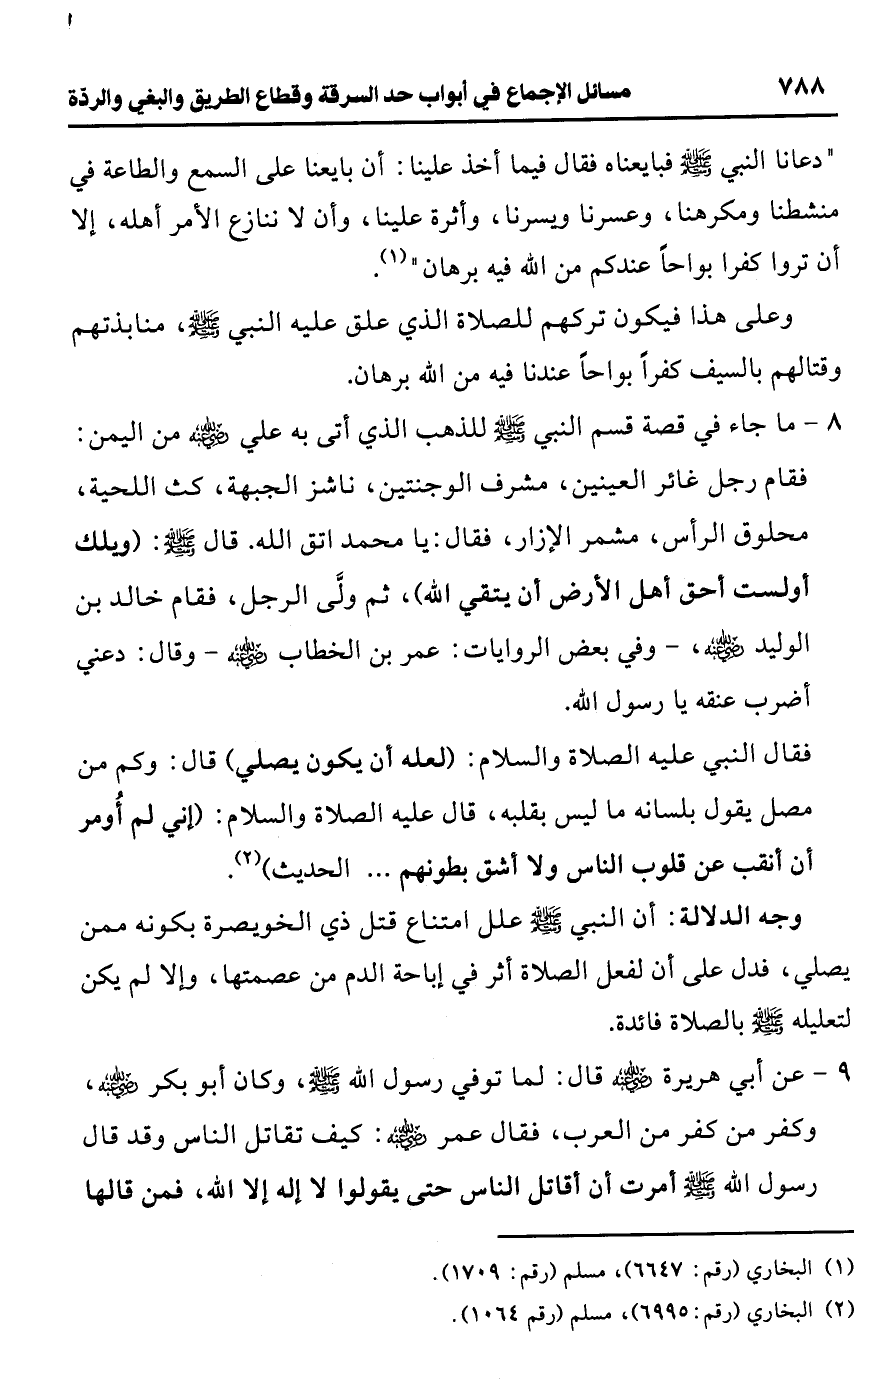 ٧٨٨ مسائل الإجماع في أبواب حد السرقة وقطاع الطريق والبغي والردّة
"دعانا النبي ﷺ فبايعناه فقال فيما أخذ علينا: أن بايعنا على السمع والطاعة في
منشطنا ومكرهنا، وعسرنا ويسرنا، وأثرة علينا، وأن لا ننازع الأمر أهله، إلا
أن تروا كفرا بواحاً عندكم من الله فيه برهان"(١).
وعلى هذا فيكون تركهم للصلاة الذي علق عليه النبي ﷺ، منابذتهم
وقتالهم بالسيف كفراً بواحاً عندنا فيه من الله برهان.
٨ - ما جاء في قصة قسم النبي ﷺ للذهب الذي أتى به علي رضي الله عنه من اليمن:
فقام رجل غائر العينين، مشرف الوجنتين، ناشز الجبهة، كث اللحية،
محلوق الرأس، مشمر الإزار، فقال: يا محمد اتق الله. قال ﷺ: (ويلك
أولست أحق أهل الأرض أن يتقي الله)، ثم ولَّى الرجل، فقام خالد بن
الوليد رضي الله عنه، - وفي بعض الروايات: عمر بن الخطاب رضي الله عنه - وقال: دعني
أضرب عنقه يا رسول الله.
فقال النبي عليه الصلاة والسلام: (لعله أن يكون يصلي) قال: وكم من
مصل يقول بلسانه ما ليس بقلبه، قال عليه الصلاة والسلام: (إني لم أُومر
أن أنقب عن قلوب الناس ولا أشق بطونهم ... الحديث)(٢).
وجه الدلالة: أن النبي ﷺ علل امتناع قتل ذي الخويصرة بكونه ممن
يصلي، فدل على أن لفعل الصلاة أثر في إباحة الدم من عصمتها، وإلا لم يكن
لتعليله ﷺ بالصلاة فائدة.
٩ - عن أبي هريرة رضي الله عنه قال: لما توفي رسول الله ﷺ، وكان أبو بكر رضي الله عنه،
وكفر من كفر من العرب، فقال عمر رضي الله عنه: كيف تقاتل الناس وقد قال
رسول الله ﷺ أمرت أن أقاتل الناس حتى يقولوا لا إله إلا الله، فمن قالها
(١) البخاري (رقم: ٦٦٤٧)، مسلم (رقم: ١٧٠٩).
(٢) البخاري (رقم: ٦٩٩٥)، مسلم (رقم ١٠٦٤).